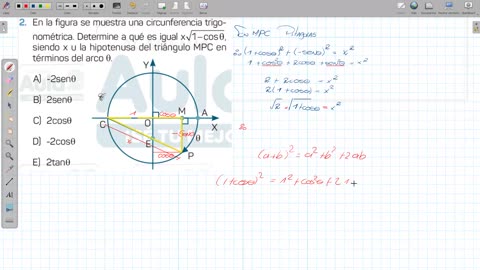 2. En la figura se muestra una circunferencia trigo-
nométrica. Determine a qué es igual x√1-cosθ,
siendo x u la hipotenusa del triángulo MPC en
términos del arco θ.
A) -2senθ
B) 2senθ
C) 2cosθ
D) -2cosθ
E) 2tanθ
Y
O
M
A
X
C
E
P
θ
1
cosθ
-senθ
x
cosθ
Aula
MPC
Pitágoras
(1+cosθ)² + (-senθ)² = x²
1 + 2cosθ + cos²θ + sen²θ = x²
2 + 2cosθ = x²
2(1+cosθ) = x²
√2 · √1+cosθ = x²
(a+b)² = a² + b² + 2ab
(1+cosθ)² = 1² + cos²θ + 2 1